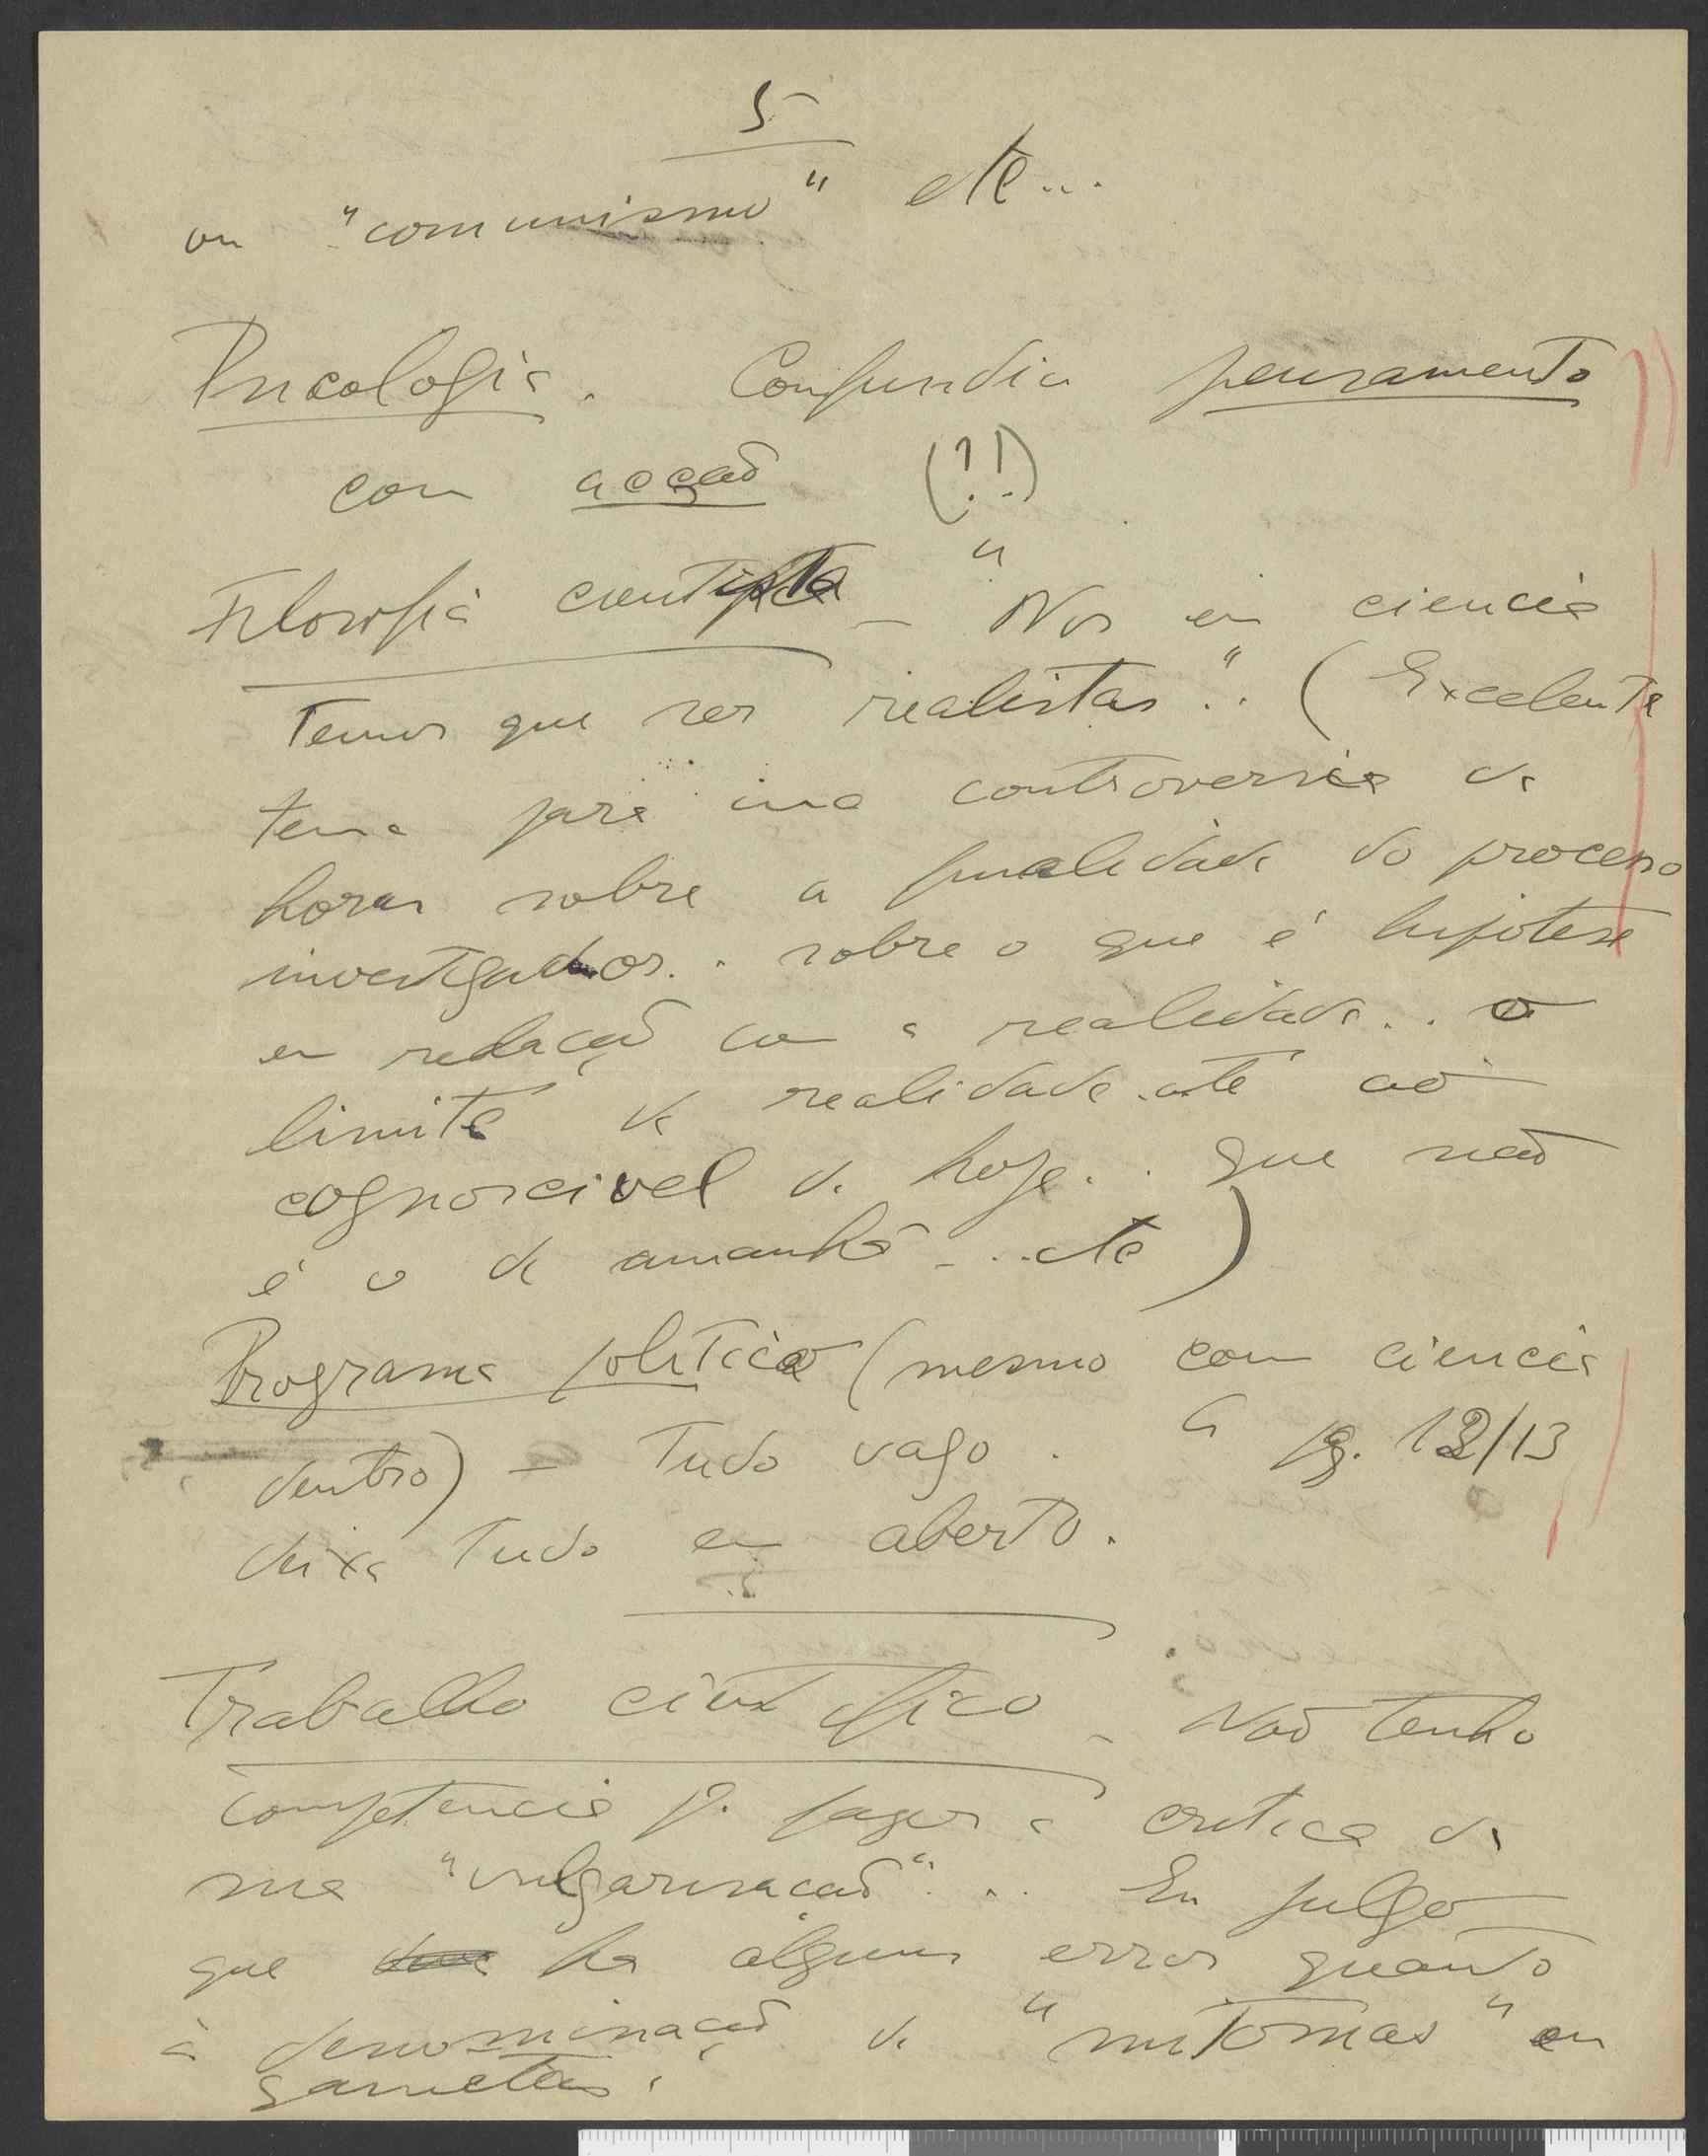 5
ou "comunismo" etc...
Psicologia. Confundiu pensamento
com acção (?!)
Filosofia cientista – "Nos em ciencia
temos que ser realistas". (Excelente
tema para uma controversia de
horas sobre a finalidade do processo
investigador.. sobre o que é hipotese
em relação com a realidade.. o
limite da realidade.. até ao
cognoscivel de hoje.. que não
é o de amanhã... etc)
Programa politico (mesmo com ciencia
dentro) – Tudo vago. pg. 12/13
deixa tudo em aberto.
Trabalho cientifico – Não tenho
competencia p. fazer a critica da
sua "vulgarisacão"... Eu julgo
que ha alguns erros quanto
à denominação de "mitomas" ou
gametas.